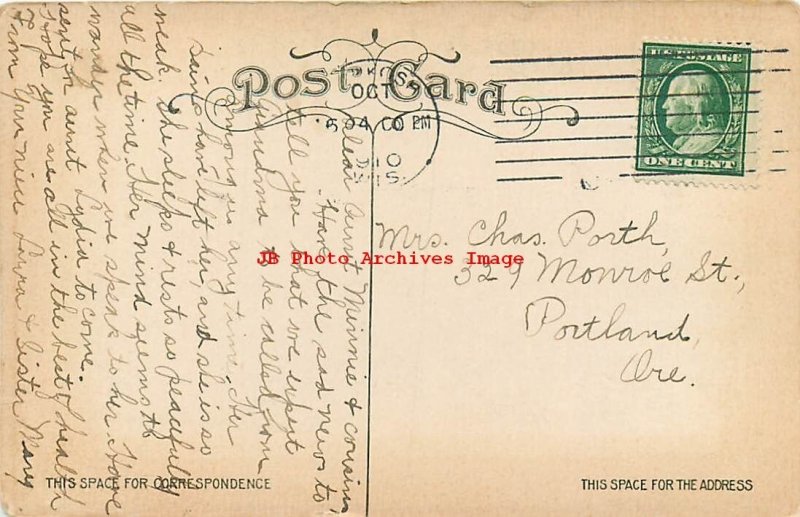 Post Card
OSHKOSH
OCT
4 00 PM
1910
WIS.
U.S. POSTAGE
ONE CENT
Dear Aunt Minnie & cousins
Have the sad news to
tell you that we expect
Grandma to be called from
among us any time. Her
pains have left her, and she is so
weak. She sleeps & rests so peacefully
all the time. Her mind seems to
wander when we speak to her. Have
sent for aunt Lydia to come.
Hope you are all in the best of health
From Your niece Laura & Sister Mary
Mrs. Chas. Porth,
329 Monroe St.,
Portland,
Ore.
JB Photo Archives Image
THIS SPACE FOR CORRESPONDENCE
THIS SPACE FOR THE ADDRESS